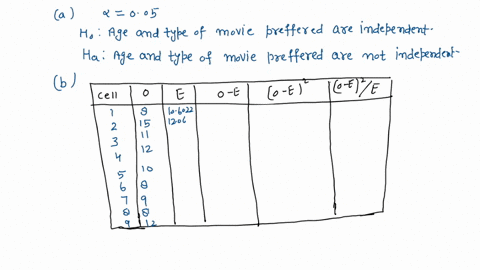 (a) α = 0.05
Ho: Age and type of movie preffered are independent.
Ha: Age and type of movie preffered are not independent.
(b)
cell O E O-E (O-E)² (O-E)²/E
1 8 10.6022
2 15 12.06
3 11
4 12
5 10
6 8
7 9
8 8
9 12